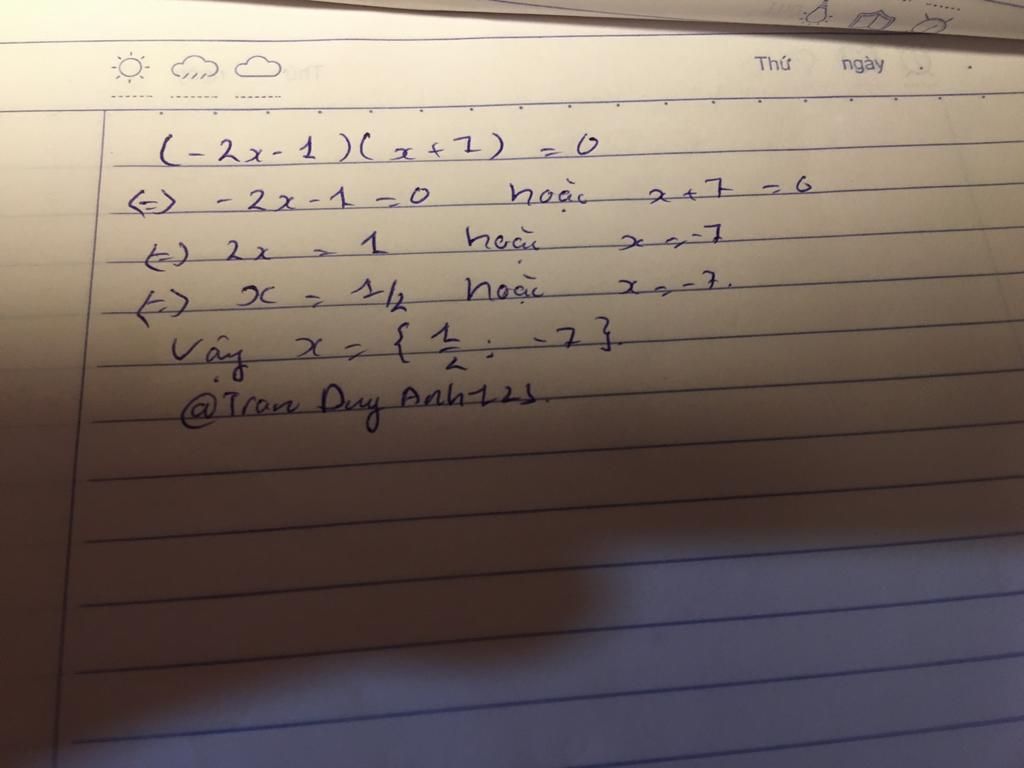 Thứ ngày
(-2x-1)(x+7) = 0
(=) -2x-1=0 hoặc x+7 = 0
(=) 2x = 1 hoặc x=-7
(=) x = 1/2 hoặc x=-7.
Vậy x = {1/2; -7}.
@Tran Duy Anh123.